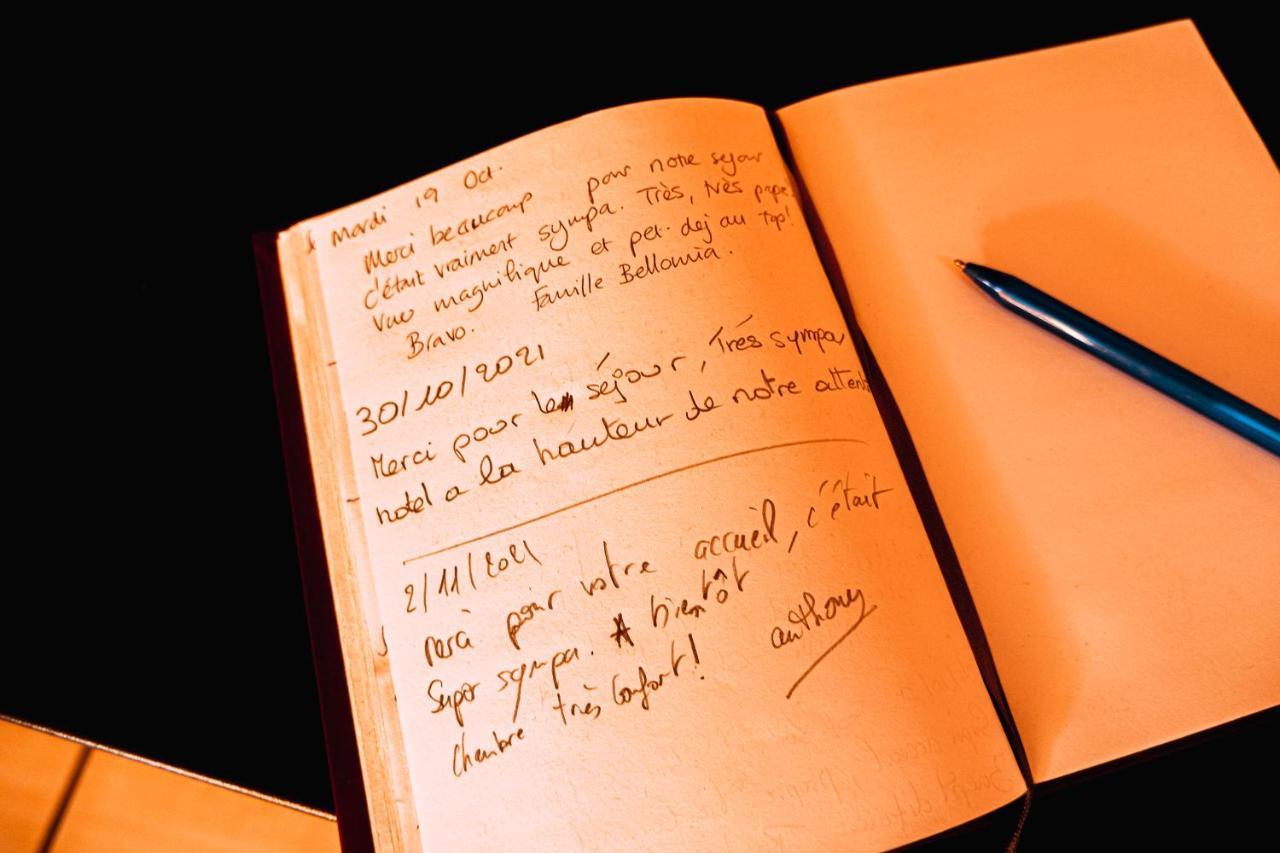 Mardi 19 Oct.
Merci beaucoup pour notre sejour
c'était vraiment sympa. Très, très
vue magnifique et pet. dej au top!
Bravo. Famille Bellomia.
30/10/2021
Merci pour le séjour, Très sympa
hotel a la hauteur de notre
2/11/2021
Merci pour votre accueil, c'était
Super sympa. A bientôt
Chambre très Confort! anthony